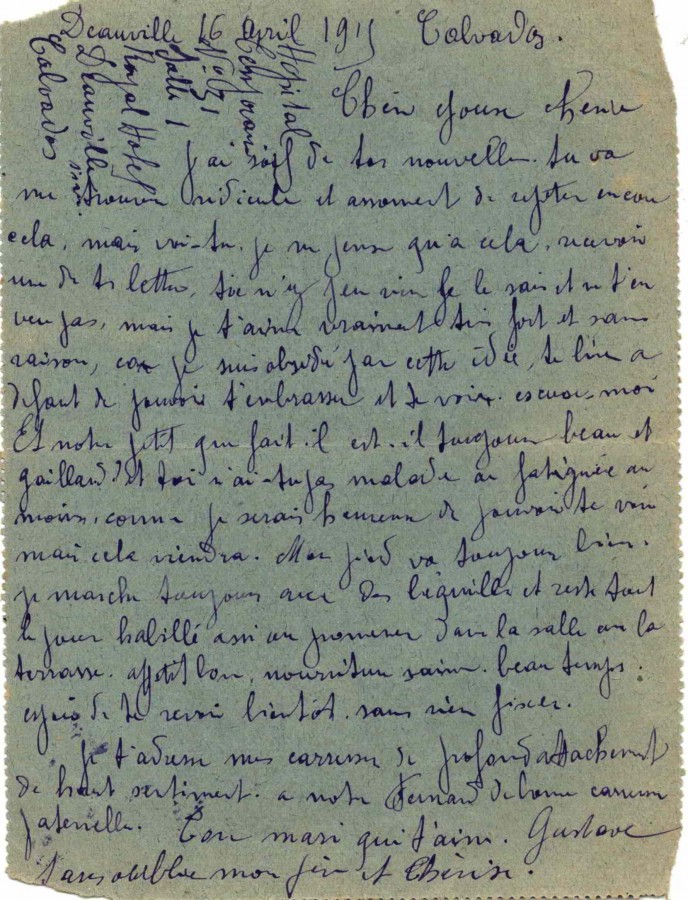 Deauville 16 April 1915 Calvados.
Hopital
Temporaire
No 51
Salle 1
Royal Hotel
Deauville
Calvados
Chère chérie
j'ai soif de tes nouvelles. tu va
me trouver ridicule et assoment de repeter encore
cela, mais voi-tu. je ne pense qu'a cela. recevoir
une de ts lettres, toi n'y peu rien je le sais et ne t'en
veu pas, mais je t'aime vraiment très fort et sans
raison, car je suis obsédé par cette idée, te lire a
defaut de pouvoir t'embrasser et te voir. escuse-moi
Et notre petit que fait-il est-il toujours beau et
gaillard? et toi n'ai-tu pas malade ou fatiguée au
moins. comme je serais heureux de pouvoir te voir
mais cela viendra. Mon pied va toujours bien.
je marche toujours avec des béquilles et reste tout
le jour habillé assi ou promener dans la salle ou la
terrasse. appetit bon, nourriture saine. beau temps.
espoir de te revoir bientôt. sans rien fixer.
je t'adresse mes carresses de profond attachement
de haut sentiment. a notre Fernand de bonne carresse
paternelle. Ton mari qui t'aime. Gustave
sans oublier mon père et Thérèse.